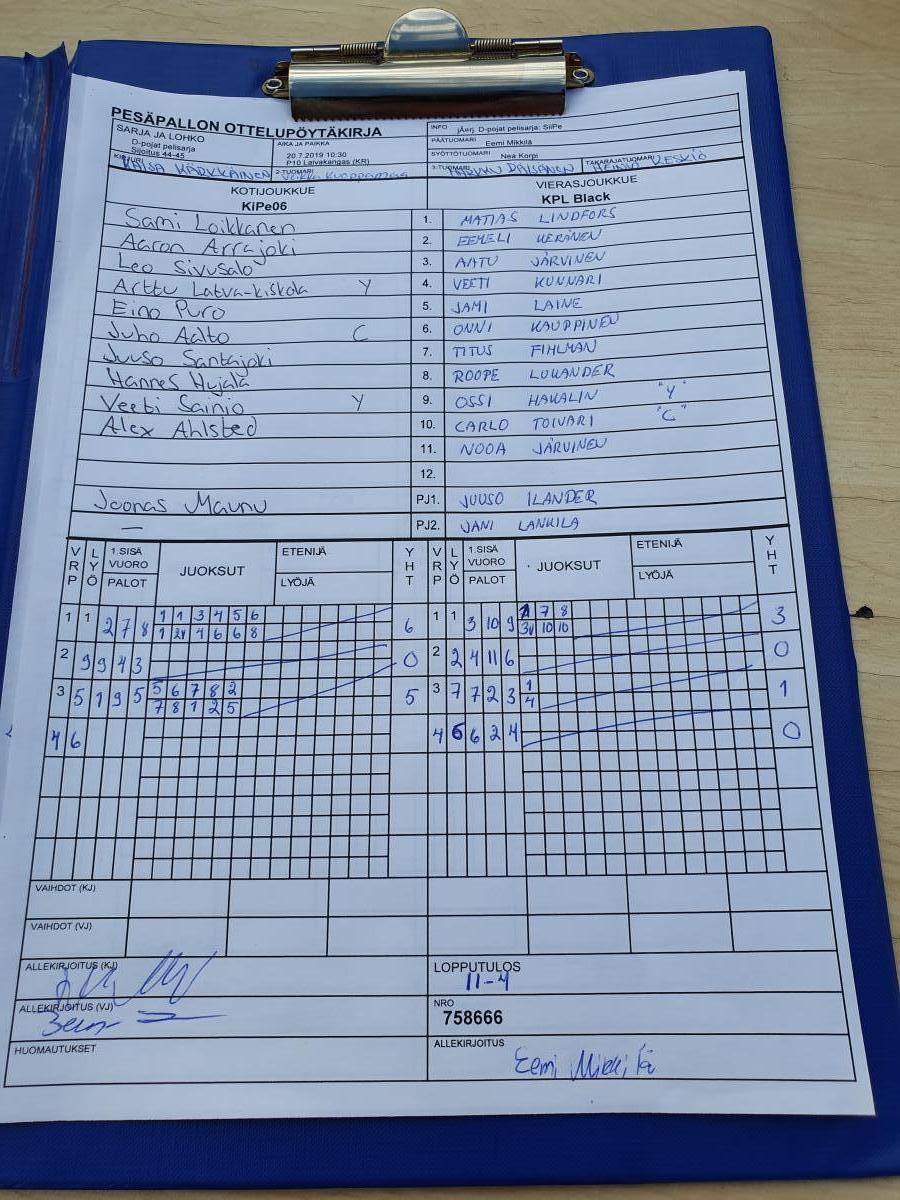 PESÄPALLON OTTELUPÖYTÄKIRJA
SARJA JA LOHKO
D-pojat pelisarja
Sijoitus 44-45
AIKA JA PAIKKA
20.7.2019 10:30
P10 Laivakangas (KR)
INFO jÄerj. D-pojat pelisarja: SiiPe
PÄÄTUOMARI Eemi Mikkilä
SYÖTTÖTUOMARI Nea Korpi
KIRJURI KAISA KÄRKKÄINEN
2-TUOMARI
3-TUOMARI
TAKARAJATUOMARI
KOTIJOUKKUE
KiPe06
VIERASJOUKKUE
KPL Black
Sami Loikkanen 1. MATIAS LINDFORS
Aaron Arrajoki 2. EEMELI KERÄNEN
Leo Sivusalo 3. AATU JÄRVINEN
Arttu Latva-kiskola Y 4. VEETI KUNNARI
Eino Puro 5. JAMI LAINE
Juho Aalto C 6. ONNI KAUPPINEN
Juuso Santajoki 7. TITUS FIHLMAN
Hannes Hujala 8. ROOPE LUKANDER
Veeti Sainio Y 9. OSSI HAKALIN "Y"
Alex Ahlsted 10. CARLO TOIVARI "C"
11. NOOA JÄRVINEN
12.
Joonas Maunu PJ1. JUUSO ILANDER
— PJ2. JANI LANKILA
VRP LYÖ 1.SISÄ VUORO PALOT JUOKSUT ETENIJÄ LYÖJÄ YHT VRP LYÖ 1.SISÄ VUORO PALOT JUOKSUT ETENIJÄ LYÖJÄ YHT
1 1 2 7 8 1 1 3 4 5 6 6 1 1 3 10 9 1 7 8 3
1 2v 4 6 6 8 3v 10 10
2 9 9 4 3 0 2 2 4 11 6 0
3 5 1 9 5 5 6 7 8 2 5 3 7 7 2 3 1 1
7 8 1 2 5 4
4 6 4 6 6 2 4 0
VAIHDOT (KJ)
VAIHDOT (VJ)
ALLEKIRJOITUS (KJ)
LOPPUTULOS
11-4
ALLEKIRJOITUS (VJ)
NRO
758666
HUOMAUTUKSET
ALLEKIRJOITUS
Eemi Mikkilä